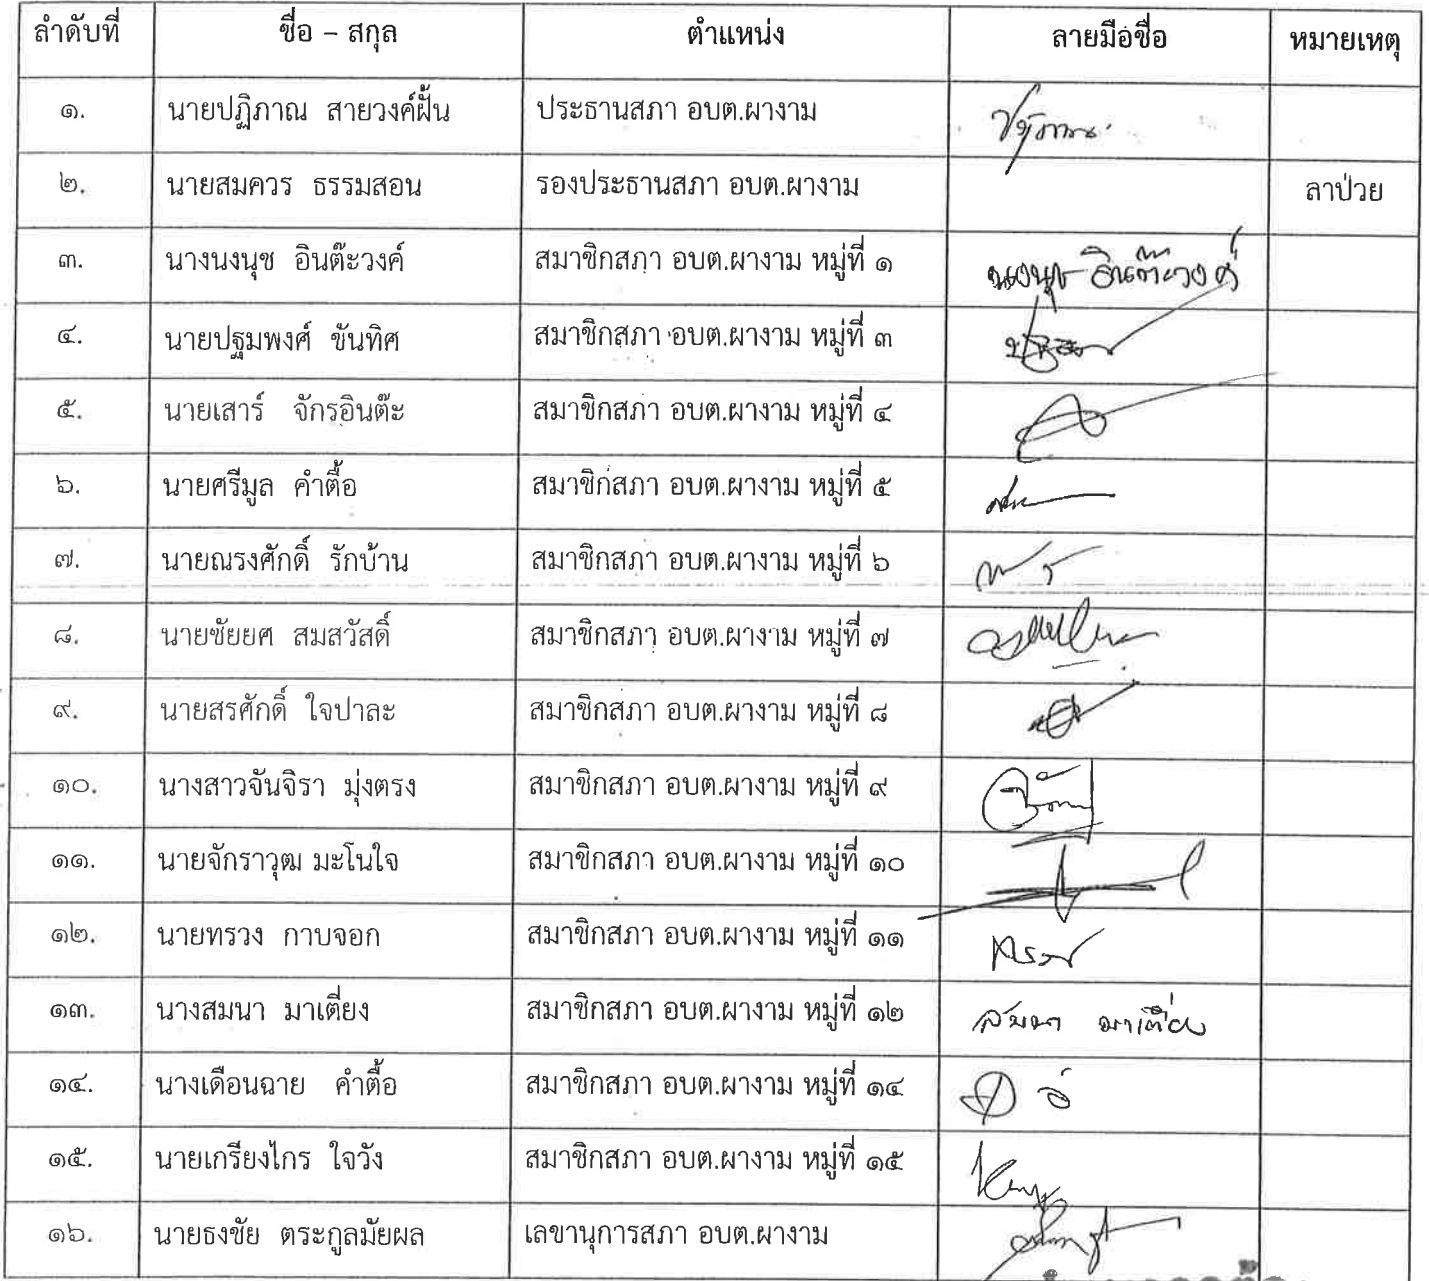 ลำดับที่ ชื่อ – สกุล ตำแหน่ง ลายมือชื่อ หมายเหตุ
๑. นายปฏิภาณ สายวงค์ฝั้น ประธานสภา อบต.ผางาม ปฏิภาณ
๒. นายสมควร ธรรมสอน รองประธานสภา อบต.ผางาม ลาป่วย
๓. นางนงนุช อินต๊ะวงค์ สมาชิกสภา อบต.ผางาม หมู่ที่ ๑ นงนุช อินต๊ะวงค์
๔. นายปฐมพงศ์ ขันทิศ สมาชิกสภา อบต.ผางาม หมู่ที่ ๓
๕. นายเสาร์ จักรอินต๊ะ สมาชิกสภา อบต.ผางาม หมู่ที่ ๔
๖. นายศรีมูล คำตื้อ สมาชิกสภา อบต.ผางาม หมู่ที่ ๕
๗. นายณรงศักดิ์ รักบ้าน สมาชิกสภา อบต.ผางาม หมู่ที่ ๖
๘. นายชัยยศ สมสวัสดิ์ สมาชิกสภา อบต.ผางาม หมู่ที่ ๗
๙. นายสรศักดิ์ ใจปาละ สมาชิกสภา อบต.ผางาม หมู่ที่ ๘
๑๐. นางสาวจันจิรา มุ่งตรง สมาชิกสภา อบต.ผางาม หมู่ที่ ๙
๑๑. นายจักราวุฒ มะโนใจ สมาชิกสภา อบต.ผางาม หมู่ที่ ๑๐
๑๒. นายทรวง กาบจอก สมาชิกสภา อบต.ผางาม หมู่ที่ ๑๑
๑๓. นางสมนา มาเตี่ยง สมาชิกสภา อบต.ผางาม หมู่ที่ ๑๒ สมนา มาเตี่ยง
๑๔. นางเดือนฉาย คำตื้อ สมาชิกสภา อบต.ผางาม หมู่ที่ ๑๔
๑๕. นายเกรียงไกร ใจวัง สมาชิกสภา อบต.ผางาม หมู่ที่ ๑๕
๑๖. นายธงชัย ตระกูลมัยผล เลขานุการสภา อบต.ผางาม